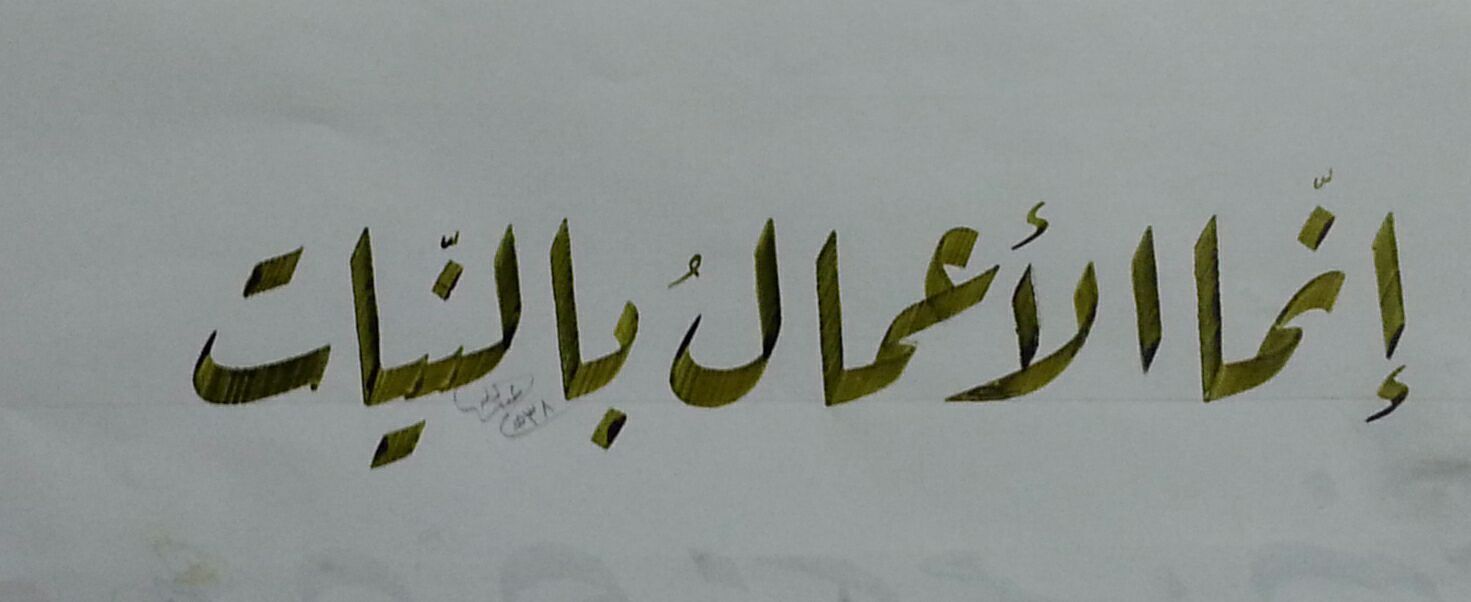 إنّما الأعمالُ بالنّيات